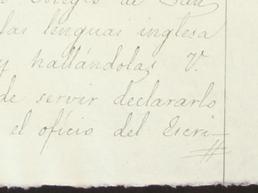 Colegio de San
las lenguas inglesa
y hallándolas V.
de servir declararlo
el oficio del Escri-